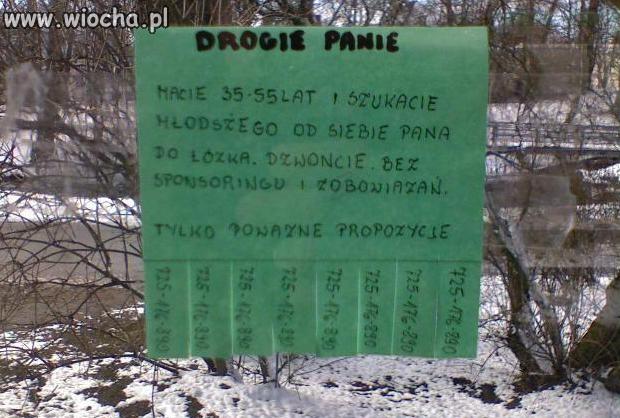 www.wiocha.pl
DROGIE PANIE
MACIE 35-55 LAT I SZUKACIE
MŁODSZEGO OD SIEBIE PANA
DO ŁÓZKA. DZWOŃCIE. BEZ
SPONSORINGU I ZOBOWIAZAŃ.
TYLKO POWAZNE PROPOZYCJE
725-176-890
725-176-890
725-176-890
725-176-890
725-176-890
725-176-890
725-176-890
725-176-890